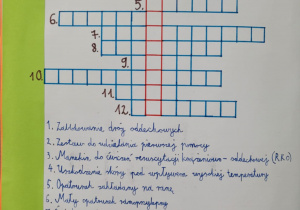 5.
6.
7.
8.
9.
10.
11.
12.
1. dróg oddechowych
2. Zestaw do udzielania pierwszej pomocy
3. Manekin do ćwiczeń resuscytacji krążeniowo-oddechowej (RKO)
4. Uszkodzenie skóry pod wpływem wysokiej temperatury
5. Opatrunek zakładany na ranę
6. Mały opatrunek